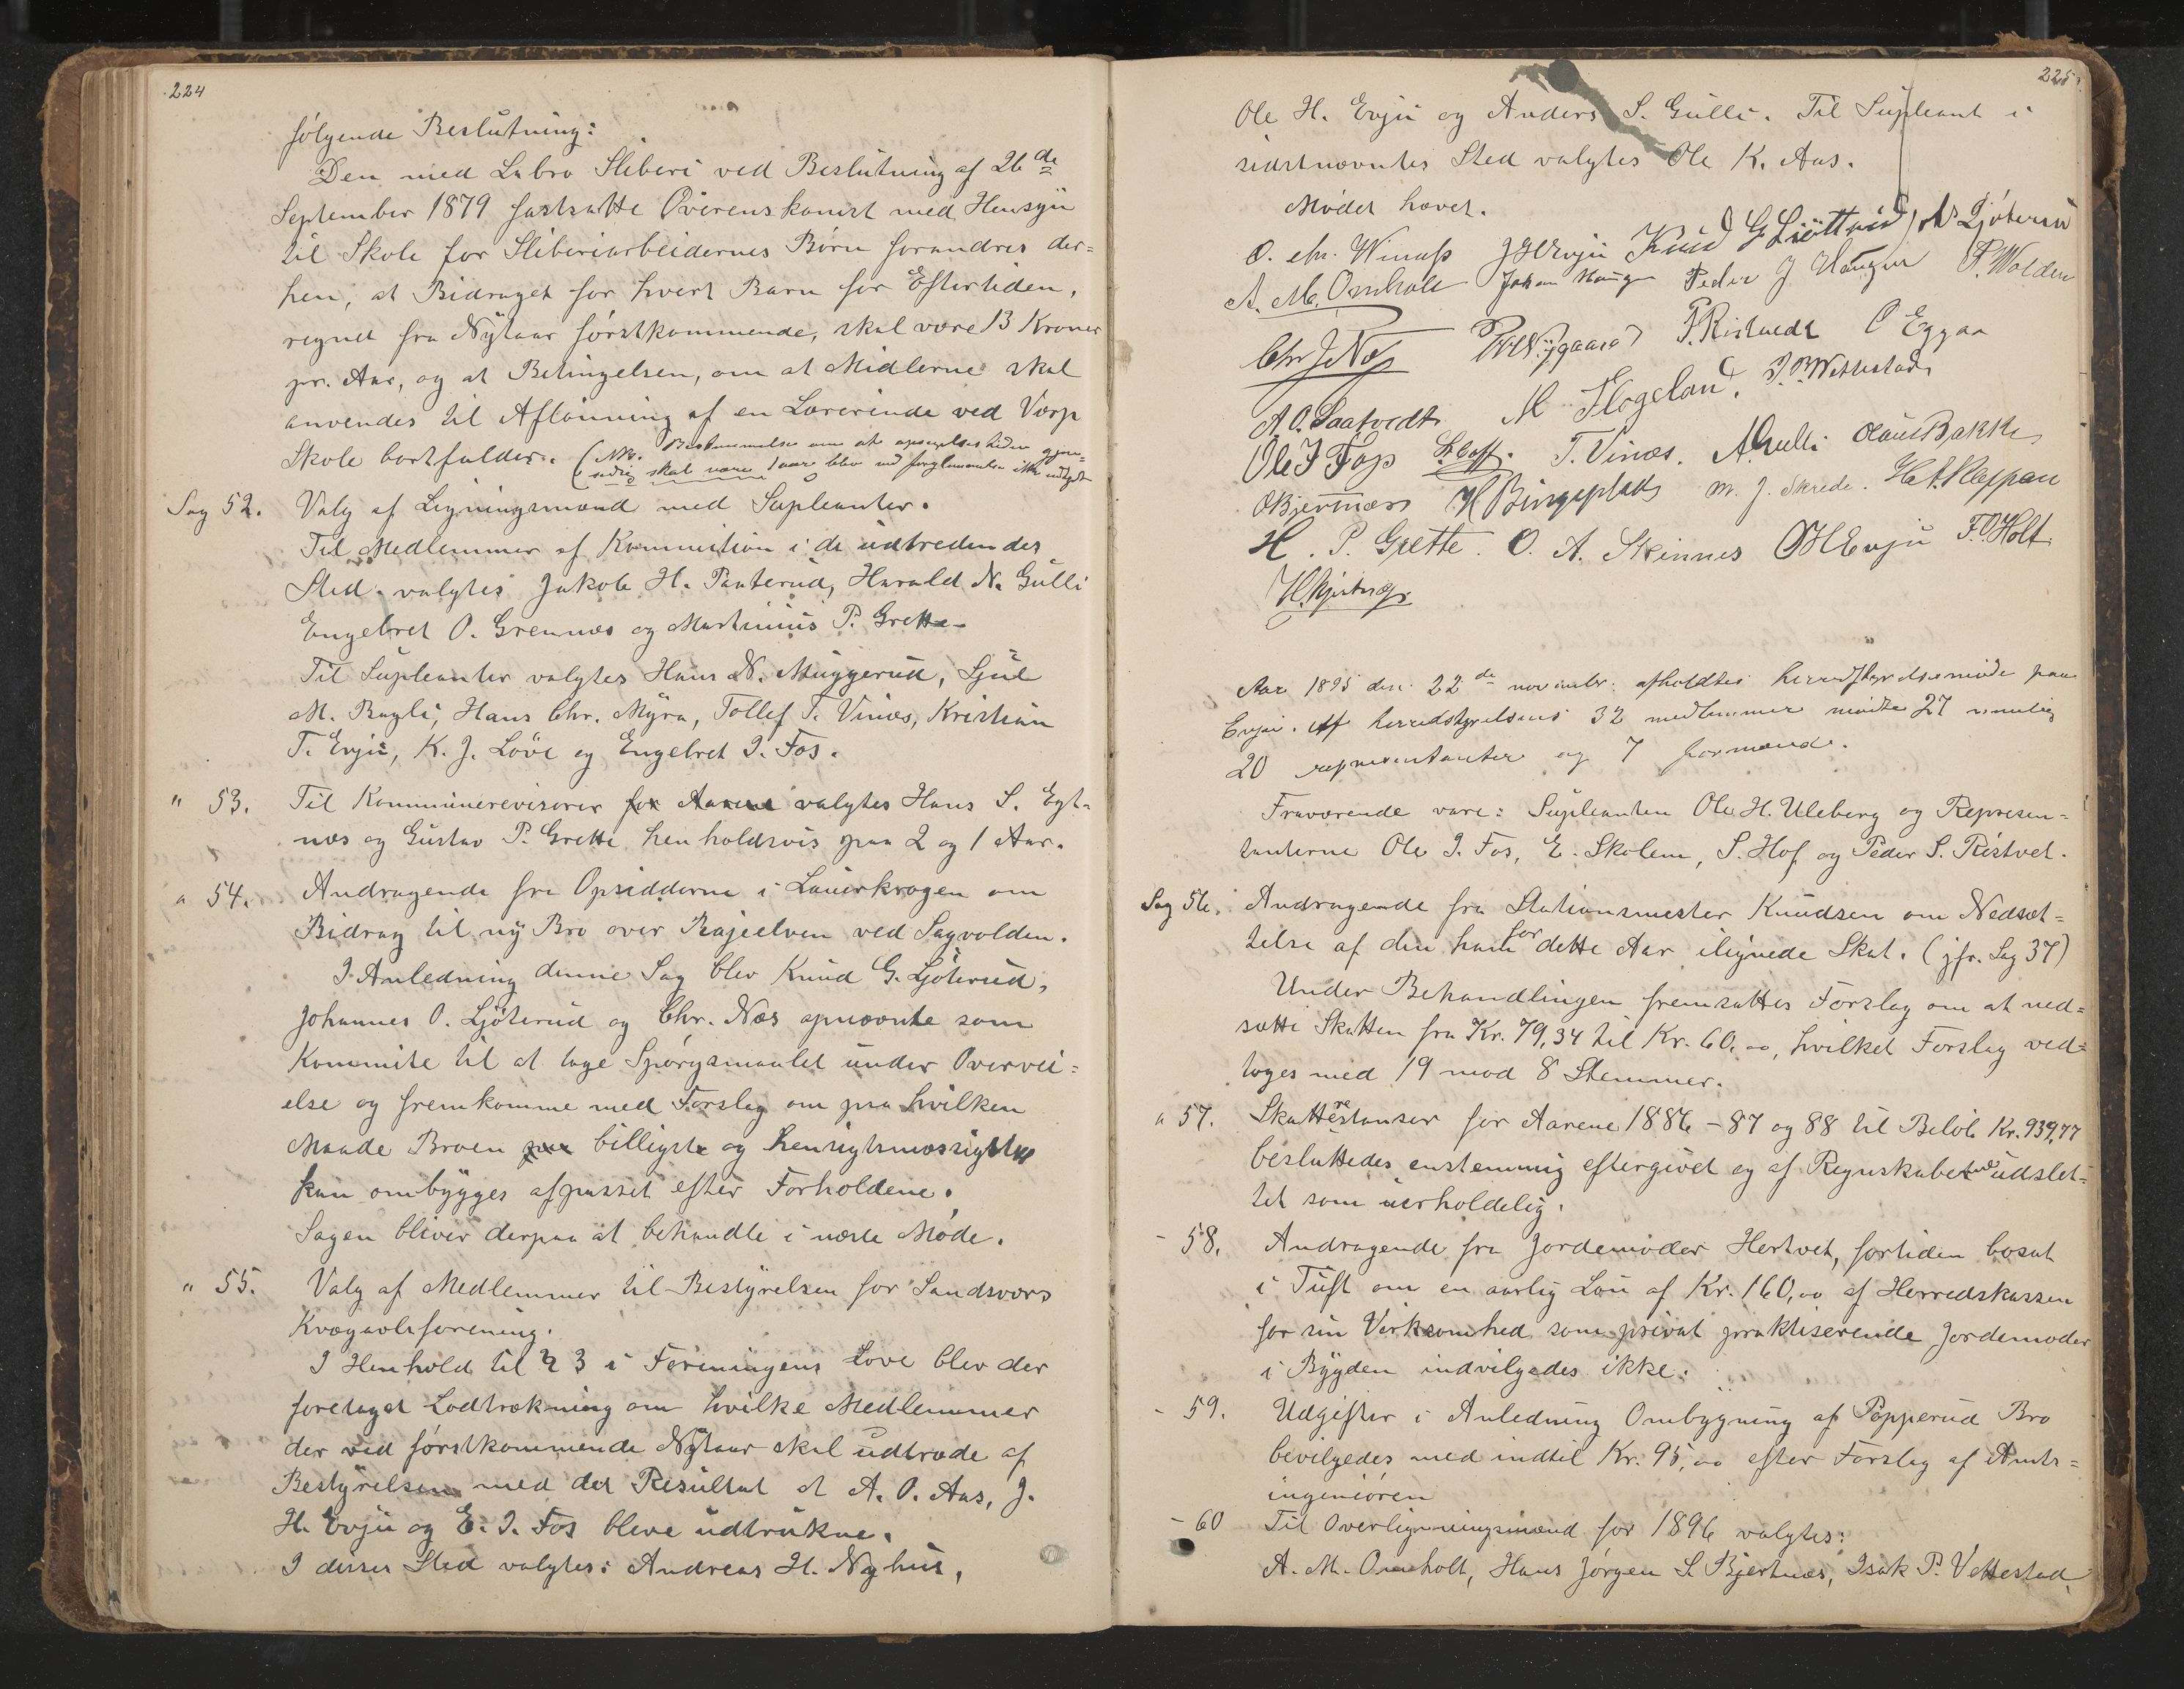 224
følgende Beslutning:
Den med Labro Sliberi ved Beslutning af 26de
September 1879 fastsatte Overenskomst med Hensyn
til Skole for Sliberiarbeidernes Børn forandres der=
hen, at Bidraget for hvert Barn for Eftertiden,
regnet fra Nytaar førstkommende, skal være 13 Kroner
pr. Aar, og at Betingelsen, om at Midlerne skal
anvendes til Aflønning af en Lærerinde ved Værp
Skole bortfalder. (NB. Bestemmelse om at opsigelsestiden gjen=
sidig skal være 1 aar blev ved forglemmelse ikke indtaget
Sag 52. Valg af Ligningsmænd med Supleanter.
Til Medlemmer af Kommistion i de udtrædendes
Sted valgtes Jakob H. Panterud, Harald N. Gulli
Engebret O. Grennes og Martinius P. Grette
Til Supleanter valgtes Hans N. Muggerud, Sjul
M. Bagli, Hans Chr. Myra, Tollef T. Vinæs, Kristian
T. Evju, K. J. Løve og Engebret I. Fos.
" 53. Til Kommunerevisorer for Aarene valgtes Hans S. Egt-
næs og Gustav P. Grette henholdsvis paa 2 og 1 Aar.
" 54. Andragende fra Opsidderne i Lauerkrogen om
Bidrag til ny Bro over Rajeelven ved Sagvolden.
I Anledning denne Sag blev Knud G. Ljøterud,
Johannes O. Ljøterud og Chr. Næs opnævnte som
Kommite til at tage Spørgsmaalet under Overvei=
else og fremkomme med Forslag om paa hvilken
Maade Broen paa billigste og hensigtsmæssigste
kan ombygges afpasset efter Forholdene.
Sagen bliver derpaa at behandle i næste Møde.
" 55. Valg af Medlemmer til Bestyrelsen for Sandsværs
Kvægavlsforening.
I Henhold til § 3 i Foreningens Love blev der
foretaget Lodtrækning om hvilke Medlemmer
der ved førstkommende Nytaar skal udtræde af
Bestyrelsen med det Resultat at A. O. Aas, J.
H. Evju og E. I. Fos bleve udtrukne.
I disses Sted valgtes: Andreas H. Nyhus,
225
Ole H. Evju og Anders S. Gulli. Til Supleant i
sidstnævntes Sted valgtes Ole K. Aas.
Mødet hævet.
O. Chr. Winæss J H Evju Knud G Ljøtterud
A. M. Omholt Johan Haugen Peder J Haugen P. Wolden
Chr J Næs P Nygaard P. Ristvedt O Eggar
A. O. Saatvedt M Hogeland. I. P. Wettestad
Ole I Foss S. Hoff. T. Vinæs. A Gulli Olaus Bakke
Bjertnæs H Bingeplads M. J. Skrede. H. A. Kleppan
H. P. Grette. O. A. Skinnes O H Evju F. O. Holt
Aar 1895 den 22de november afholdtes herredstyrelsesmøde paa
Evju. Af herredstyrelsens 32 medlemmer mødte 27 nemlig
20 repræsentanter og 7 formænd.
Fraværende vare: Supleanten Ole H. Uleberg og Repræsen=
tanterne Ole I. Fos, E. Skolem, S. Hof og Peder S. Ristvet.
Sag 56. Andragende fra Stationsmester Knudsen om Nedsæt=
telse af den ham for dette Aar ilignede Skat. (jfr. Sag 37)
Under Behandlingen fremsattes Forslag om at ned=
sætte Skatten fra Kr. 79,34 til Kr. 60,00, hvilket Forslag ved=
toges med 19 mod 8 Stemmer.
" 57. Skatterestanser for Aarene 1886 - 87 og 88 til Beløb Kr. 939,77
besluttedes enstemmig eftergivet og af Regnskabet udslet=
tet som uerholdelig.
- 58. Andragende fra Jordemoder Hertvet, fortiden bosat
i Tuft om en aarlig Løn af Kr. 160,00 af Herredskassen
for sin Virksomhed som privat praktiserende Jordemoder
i Bygden indvilgedes ikke.
- 59. Udgifter i Anledning Ombygning af Popperud Bro
bevilgedes med indtil Kr. 95,00 efter Forslag af Amts=
ingeniøren
- 60 Til Overligningsmænd for 1896 valgtes:
A. M. Omholt, Hans Jørgen S. Bjertnæs, Isak P. Vettestad